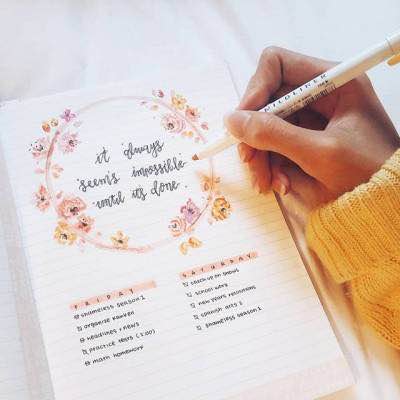 it always
seems impossible
until it's done.
MILDLINER
FRIDAY
shameless season 2
organise
headlines + news
practice tests (1:00)
math homework
SATURDAY
catch up on shows
school work
new years resolutions
spanish arts 2
shameless season 2